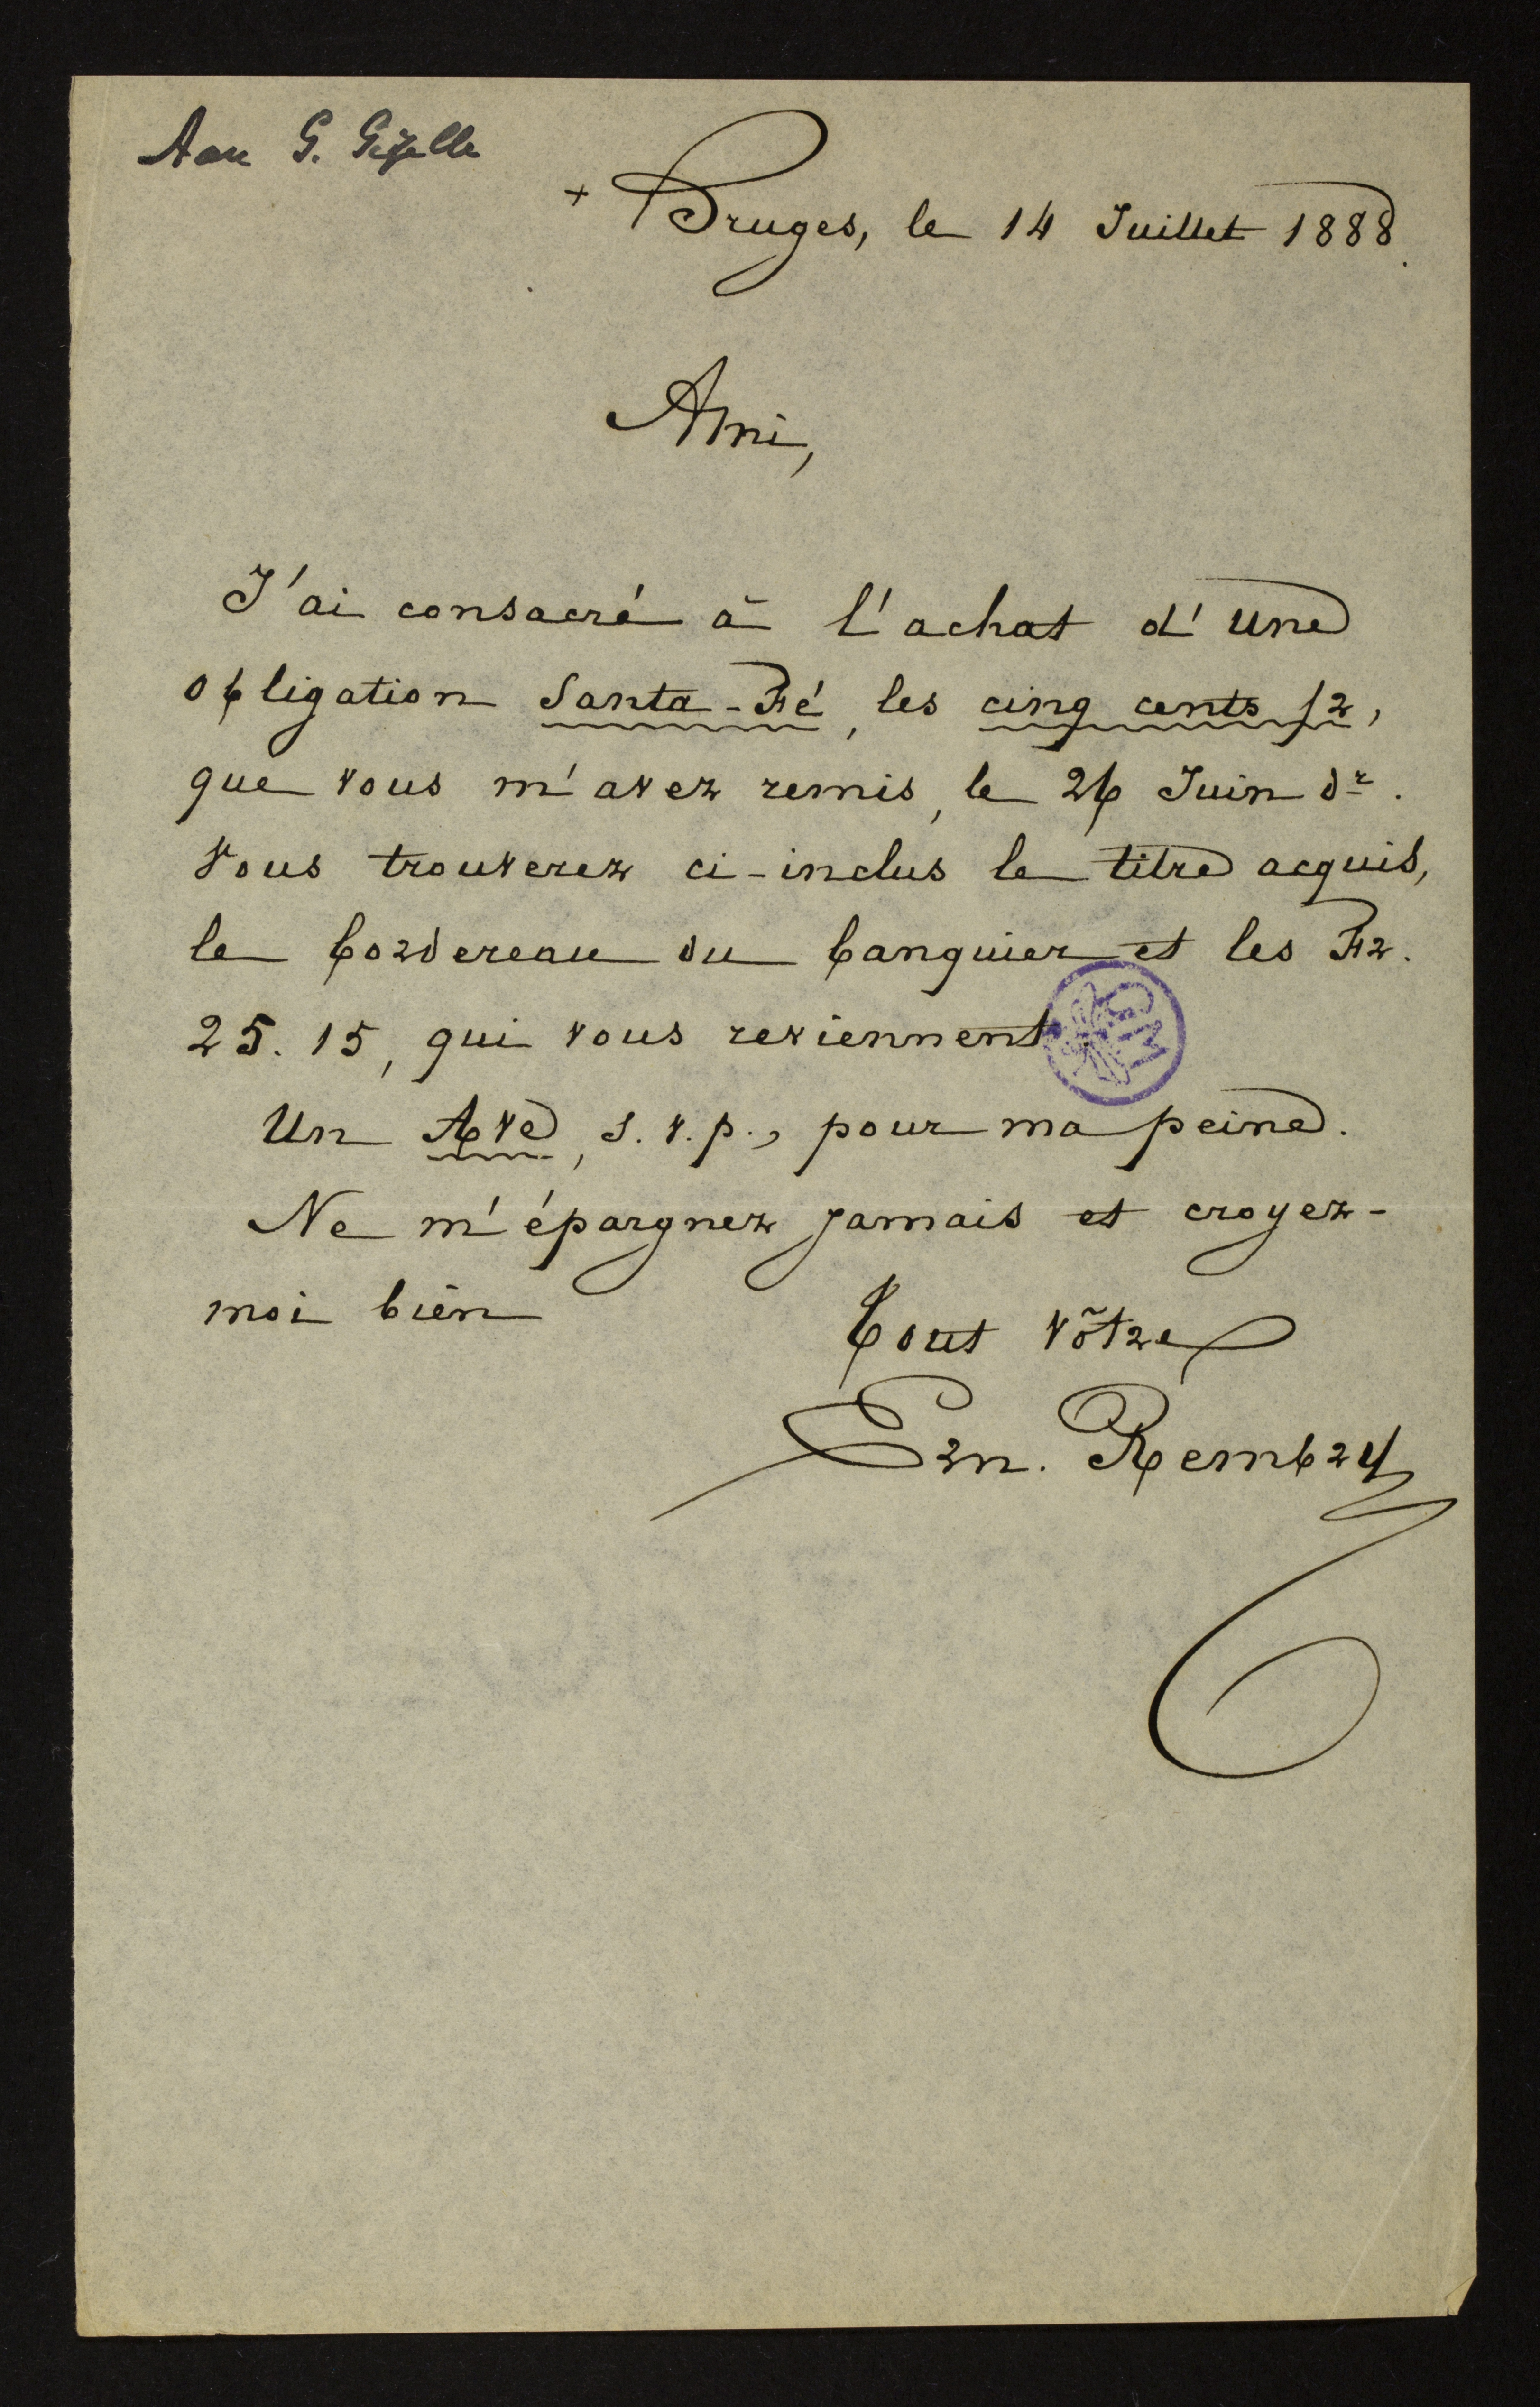 Aan G. Gezelle
+ Bruges, le 14 Juillet 1888.
Ami,
J'ai consacré à l'achat d'une
obligation Santa-Fé, les cinq cents fr,
que vous m'avez remis, le 26 Juin dr.
Vous trouverez ci-inclus le titre acquis,
le bordereau du banquier et les Fr.
25.15, qui vous reviennent.
Un Ave, s.v.p., pour ma peine.
Ne m'épargnez jamais et croyez-
moi bien
Tout vôtre
Ern. Rembry